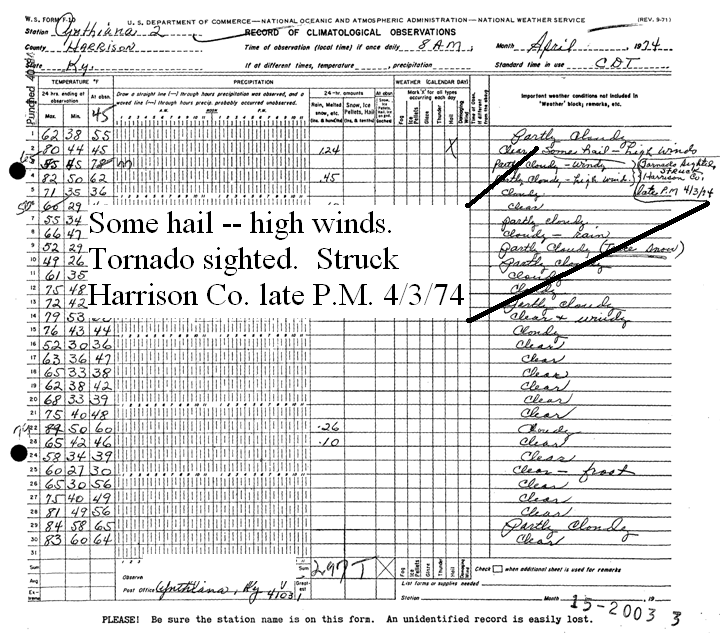 W.S. FORM F-10 U. S. DEPARTMENT OF COMMERCE—NATIONAL OCEANIC AND ATMOSPHERIC ADMINISTRATION—NATIONAL WEATHER SERVICE (REV. 9-71)
Station Cynthiana 2 RECORD OF CLIMATOLOGICAL OBSERVATIONS
County HARRISON Time of observation (local time) if once daily 8 AM, Month April, 1974
State Ky. If at different times, temperature , precipitation Standard time in use CDT
TEMPERATURE °F PRECIPITATION 24-hr. amounts At obsn. WEATHER (CALENDAR DAY)
24 hrs. ending at observation At obsn. Draw a straight line (—) through hours precip. was observed, and a waved line through hours precip. probably occurred unobserved. Rain, Melted snow, etc. Snow, Ice Pellets, Hail Mark 'X' for all types occurring each day Important weather conditions not included in 'Weather' block; remarks, etc.
Max. Min. 45 Fog Ice Pellets Glaze Thunder Hail Damaging Winds
1 62 38 55 Partly Cloudy
2 80 44 45 1.24 X Clear Some hail - high winds
3 45 Partly Cloudy - Windy Tornado Sighted
4 82 50 62 .45 Partly Cloudy - high wind. STRUCK Harrison Co.
5 71 35 36 Cloudy late P.M. 4/3/74
29 Clear
7 55 34 Partly cloudy
8 66 47 Cloudy - rain
9 52 29 Partly Cloudy (Snow)
10 49 26 Partly Cloudy
11 61 35 Cloudy
12 75 48 Cloudy
13 72 42 Partly cloudy
14 79 53 Clear + windy
Some hail -- high winds.
Tornado sighted. Struck
Harrison Co. late P.M. 4/3/74
15 76 43 44 Cloudy
16 52 30 36 Clear
17 63 36 47 Clear
18 65 33 38 Clear
19 62 38 42 Clear
20 68 33 39 Clear
21 75 40 48 Clear
22 50 60 .26 Cloudy
23 65 42 46 .10 Clear
24 58 34 39 Clear
25 60 27 30 Clear - frost
26 65 30 56 Clear
27 75 40 49 Clear
28 81 49 56 Clear
29 84 58 65 Partly Cloudy
30 83 60 64 Clear
31
Sum Sum 2.97 T X Fog Ice Pellets Glaze Thunder Hail Damaging Winds Check when additional sheet is used for remarks
Avg. Observer List forms or supplies needed
Post Office Cynthiana, Ky Greatest Station Month 19
15-2003 3
PLEASE! Be sure the station name is on this form. An unidentified record is easily lost.